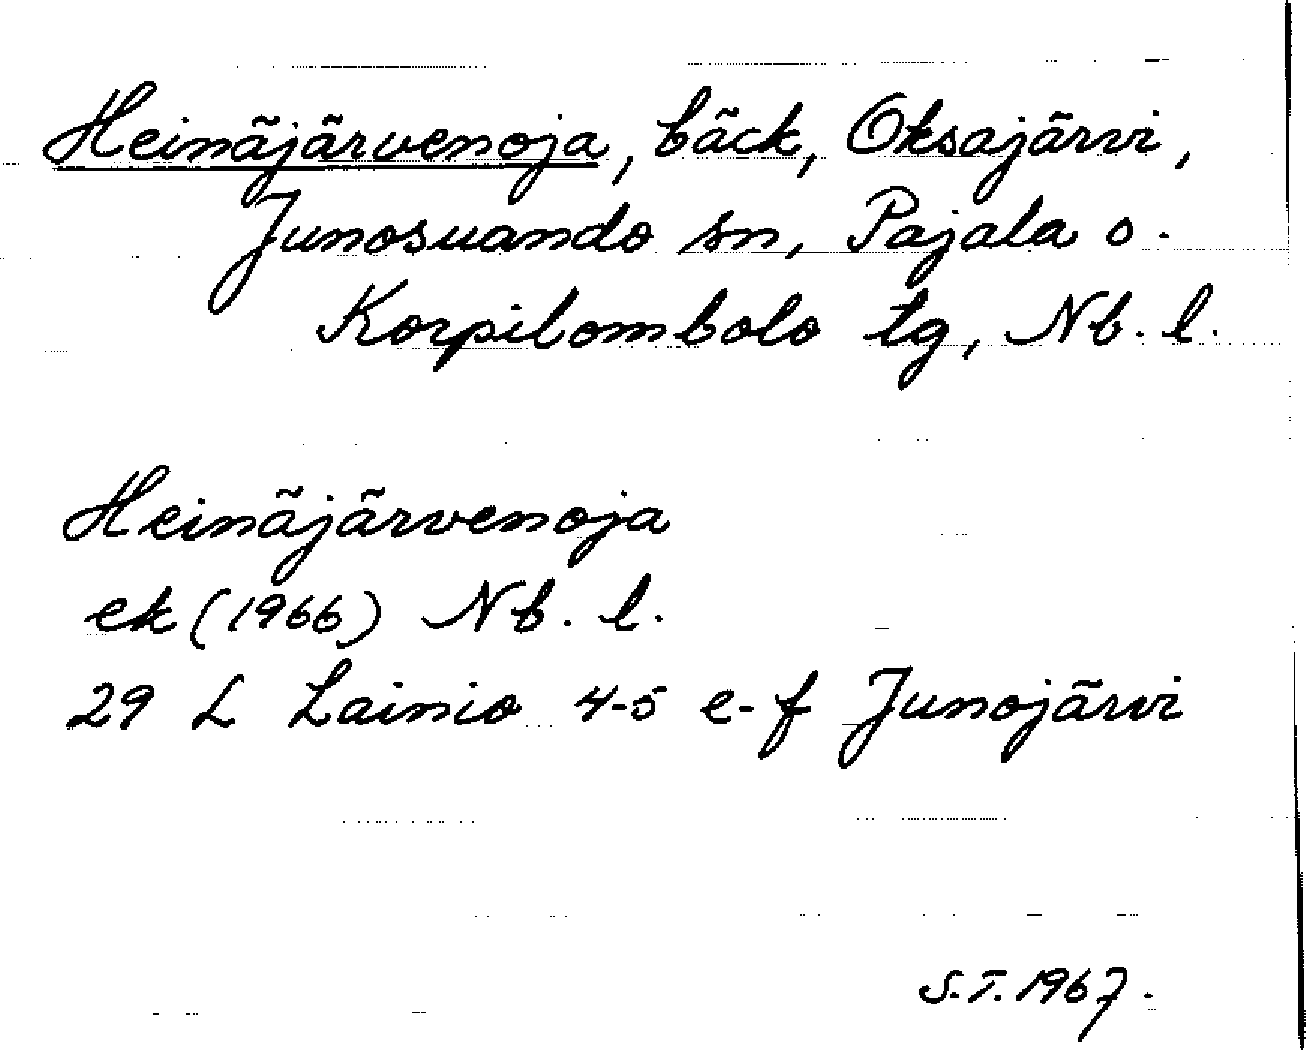 Heinäjärvenoja, bäck, Oksajärvi,
Junosuando sn, Pajala o.
Korpilombolo tg, Nb. l.
Heinäjärvenoja
ek (1966) Nb. l.
29 L Lainio 4-5 e-f Junojärvi
S.T. 1967.